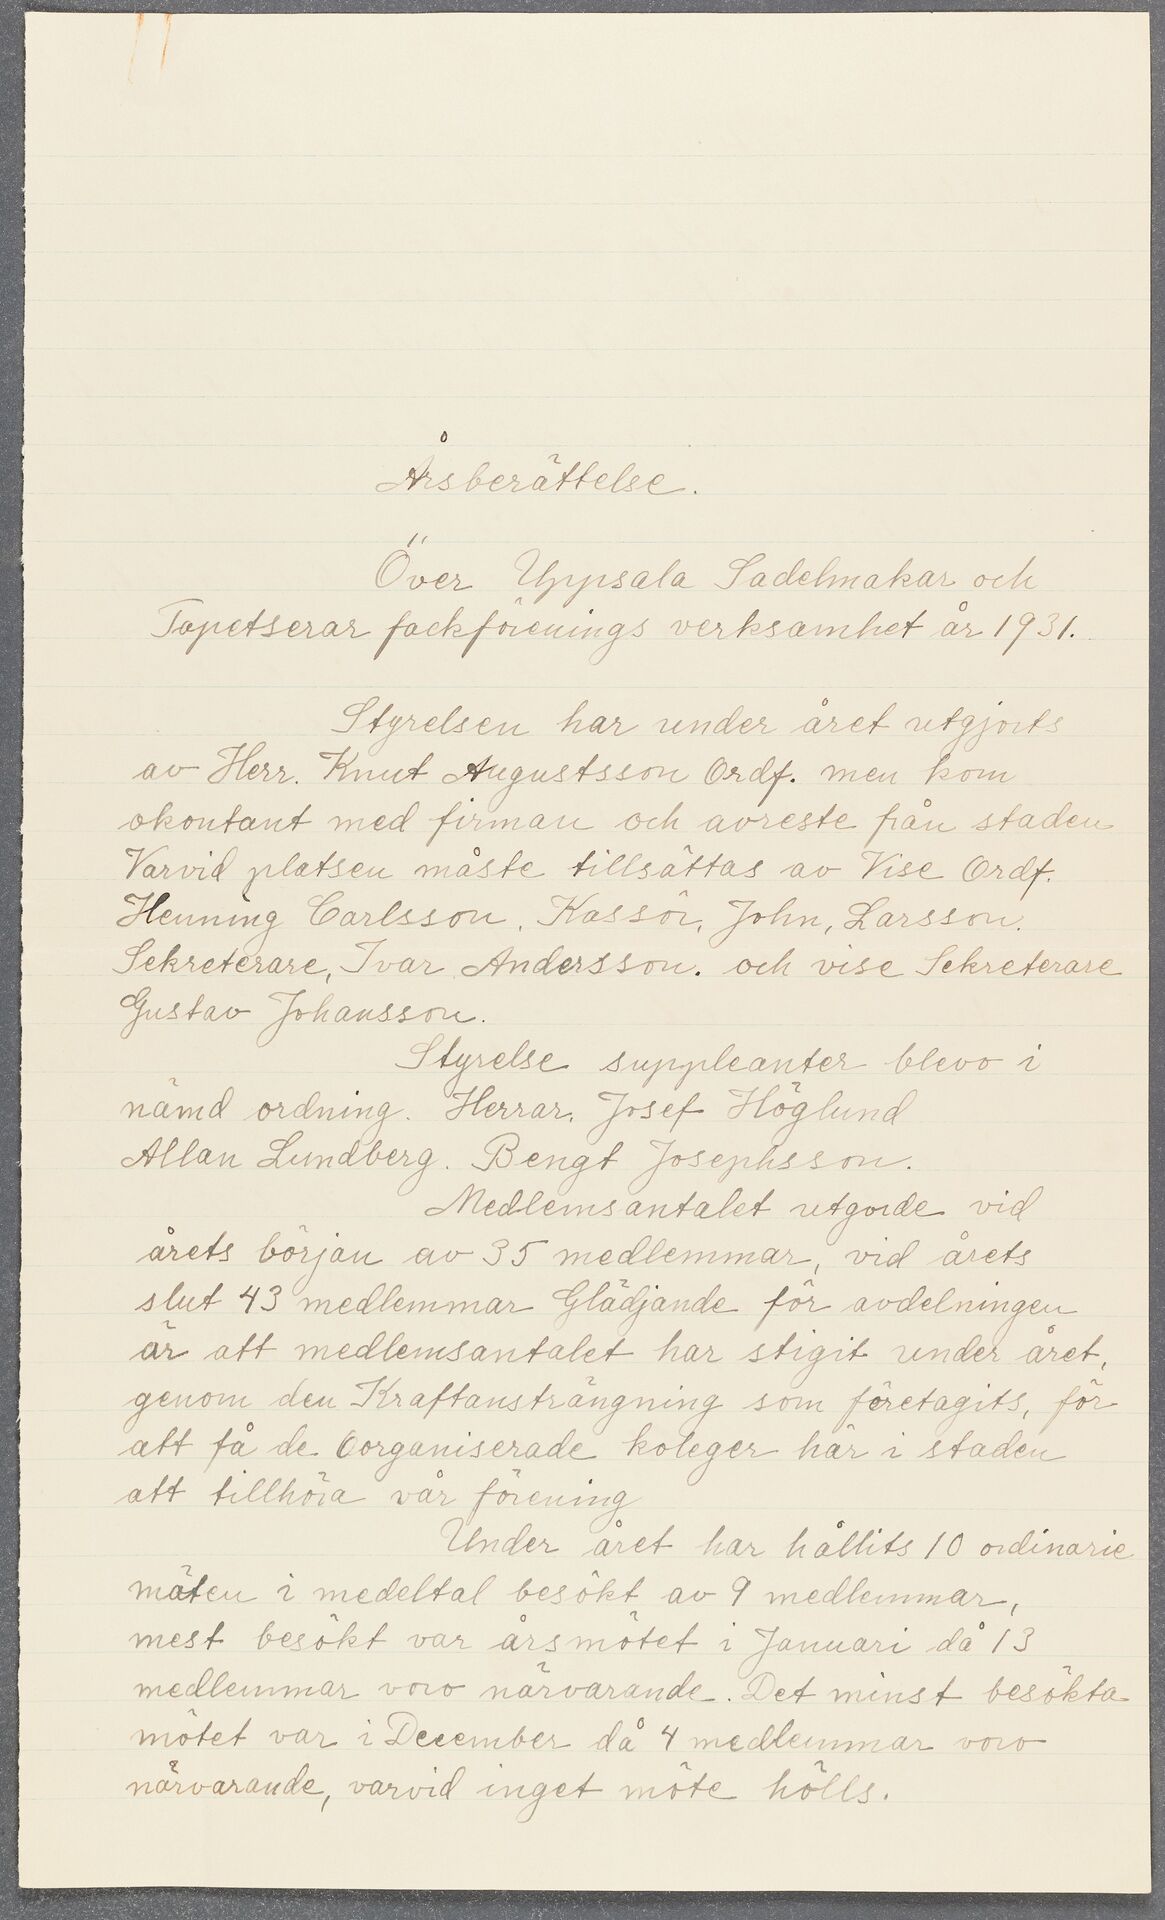 Årsberättelse.
Över Uppsala Sadelmakar och
Tapetserar fackförenings verksamhet år 1931.
Styrelsen har under året utgjorts
av Herr. Knut Augustsson Ordf. men kom
okontant med firman och avreste från staden
Varvid platsen måste tillsättas av Vise Ordf.
Henning Carlsson, Kassör, John, Larsson.
Sekreterare, Ivar Andersson. och vise Sekreterare
Gustav Johansson.
Styrelse suppleanter blevo i
nämd ordning. Herrar. Josef Höglund
Allan Lundberg. Bengt Josephsson.
Medlemsantalet utgorde vid
årets början av 35 medlemmar, vid årets
slut 43 medlemmar Glädjande för avdelningen
är att medlemsantalet har stigit under året,
genom den Kraftansträngning som företagits, för
att få de Oorganiserade koleger här i staden
att tillhöra vår förening
Under året har hållits 10 ordinarie
möten i medeltal besökt av 9 medlemmar,
mest besökt var årsmötet i Januari då 13
medlemmar voro närvarande. Det minst besökta
mötet var i December då 4 medlemmar voro
närvarande, varvid inget möte hölls.